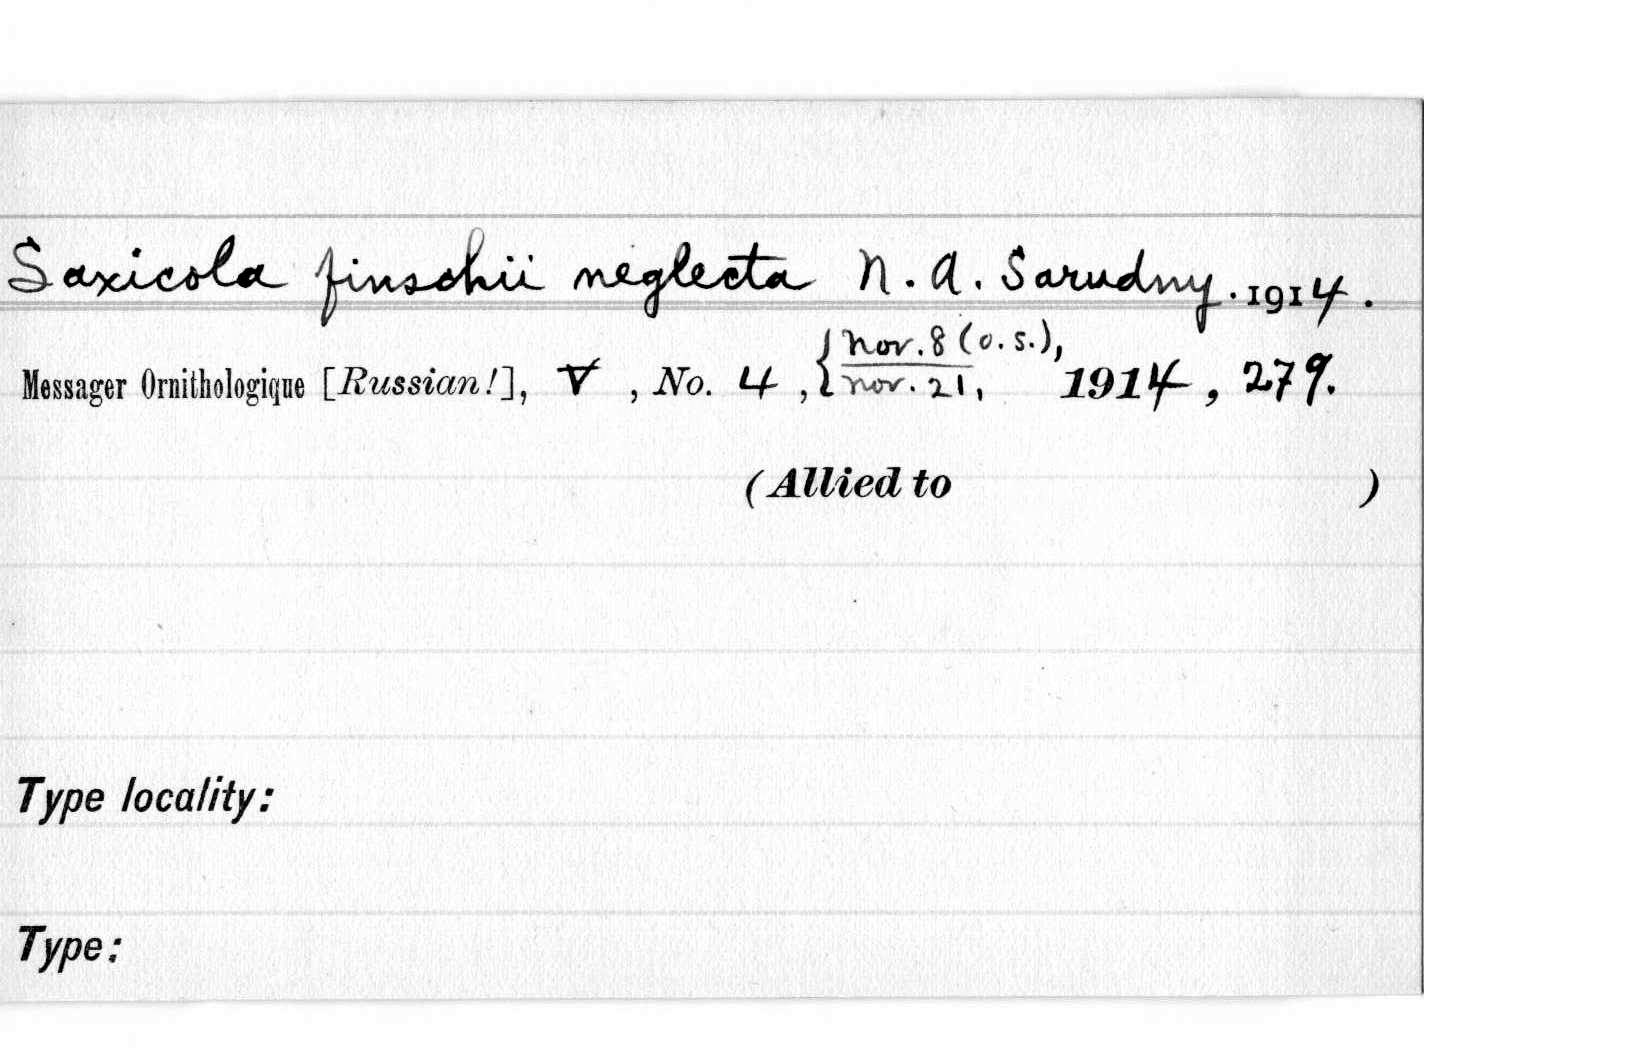 Saxicola finschii neglecta N. A. Sarudny. 1914.
Messager Ornithologique [Russian!], V, No. 4, { Nov. 8 (o.s.), Nov. 21, 1914, 279.
(Allied to )
Type locality:
Type: